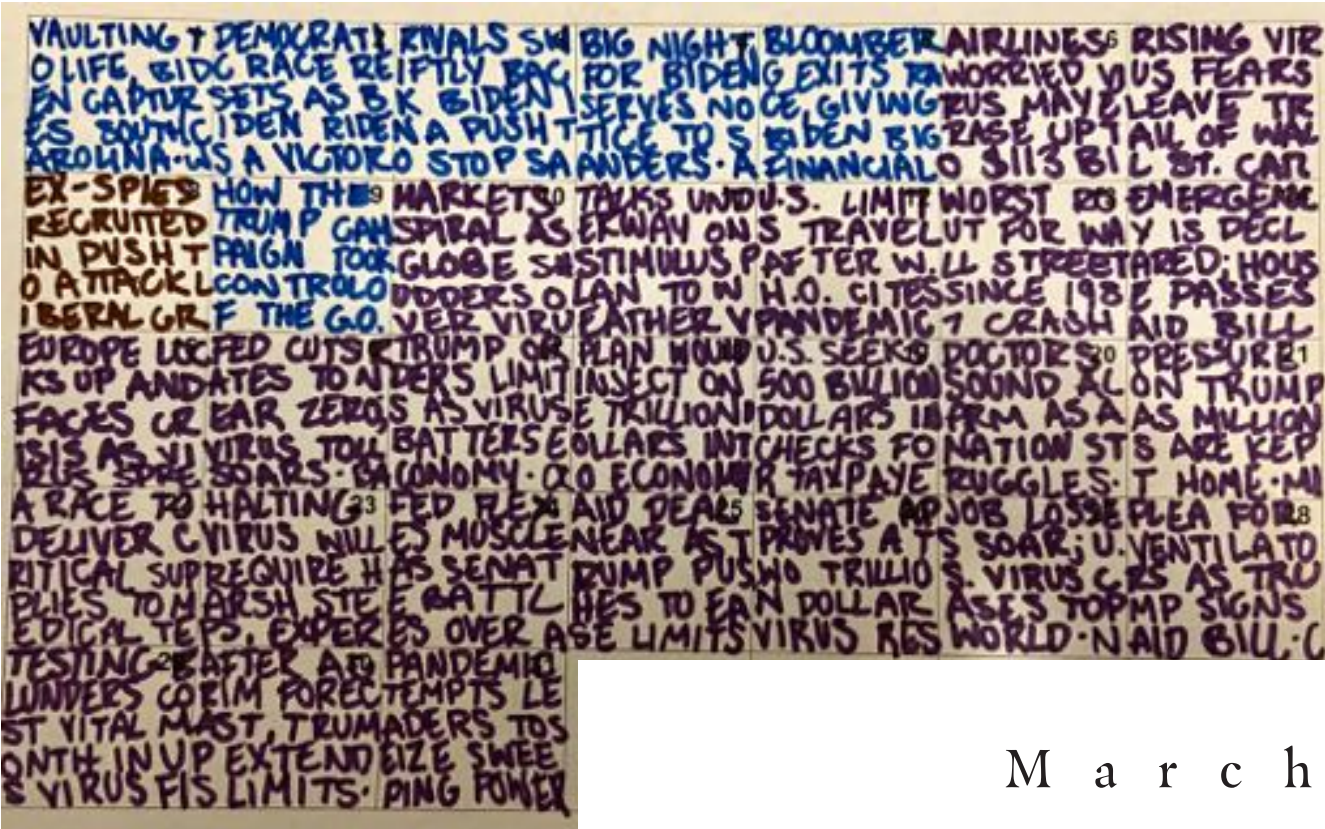 VAULTING T
O LIFE, BID
EN CAPTUR
ES SOUTH C
AROLINA·W
DEMOCRATI
C RACE RE
SETS AS B
IDEN RIDE
S A VICTOR
RIVALS SW
IFTLY BAC
K BIDEN I
N A PUSH T
O STOP SA
BIG NIGHT
FOR BIDEN
SERVES NO
TICE TO S
ANDERS·A
BLOOMBER
G EXITS RA
CE, GIVING
BIDEN BIG
FINANCIAL
AIRLINES 6
WORRIED VI
RUS MAY E
RASE UP T
O $113 BI
RISING VIR
US FEARS
LEAVE TR
AIL OF WAL
L ST. CAR
EX-SPIES 8
RECRUITED
IN PUSH T
O ATTACK L
IBERAL GR
HOW THE 9
TRUMP CAM
PAIGN TOOK
CONTROL O
F THE G.O.
MARKETS 10
SPIRAL AS
GLOBE SH
UDDERS O
VER VIRU
TALKS UND
ERWAY ON
STIMULUS P
LAN TO W
EATHER V
U.S. LIMIT
S TRAVEL
AFTER W.
H.O. CITES
PANDEMIC
WORST RO
UT FOR WA
LL STREET
SINCE 198
7 CRASH
EMERGENC
Y IS DECL
ARED; HOUS
E PASSES
AID BILL
EUROPE LOC
KS UP AND
FACES CR
ISIS AS VI
RUS SPRE
FED CUTS R
ATES TO N
EAR ZERO;
VIRUS TOLL
SOARS·BA
TRUMP OR
DERS LIMIT
S AS VIRUS
BATTERS E
CONOMY·
PLAN WOULD
INJECT ON
E TRILLION D
OLLARS INT
O ECONOM
U.S. SEEKS 19
500 BILLION
DOLLARS IN
CHECKS FO
R TAXPAYE
DOCTORS 20
SOUND AL
ARM AS A
NATION ST
RUGGLES·
PRESSURE 21
ON TRUMP
AS MILLION
S ARE KEP
T HOME·MI
A RACE TO
DELIVER C
RITICAL SUP
PLIES TO M
EDICAL TE
HALTING 23
VIRUS WILL
REQUIRE H
ARSH STE
PS, EXPER
FED FLEX
ES MUSCLE
AS SENAT
E BATTL
ES OVER A
AID DEAL 25
NEAR AS T
RUMP PUS
HES TO EA
SE LIMITS
SENATE AP
PROVES A T
WO TRILLIO
N DOLLAR
VIRUS RES
JOB LOSSE
S SOAR; U.
S. VIRUS C
ASES TOP
WORLD·N
PLEA FOR 28
VENTILATO
RS AS TRU
MP SIGNS
AID BILL·C
TESTING B
LUNDERS CO
ST VITAL M
ONTH IN U
S VIRUS FI
AFTER A G
RIM FOREC
AST, TRUM
P EXTEND
S LIMITS·
PANDEMIC
TEMPTS LE
ADERS TO S
EIZE SWEE
PING POWER
March